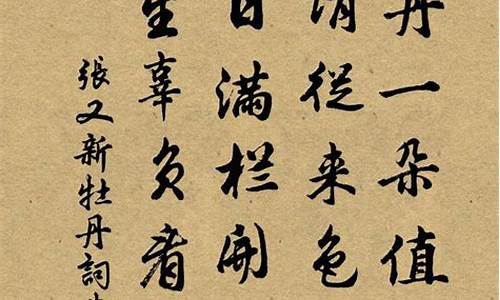 丹一朵值
谓從来色
日满栏開
生辜负看
張又新牡丹詞